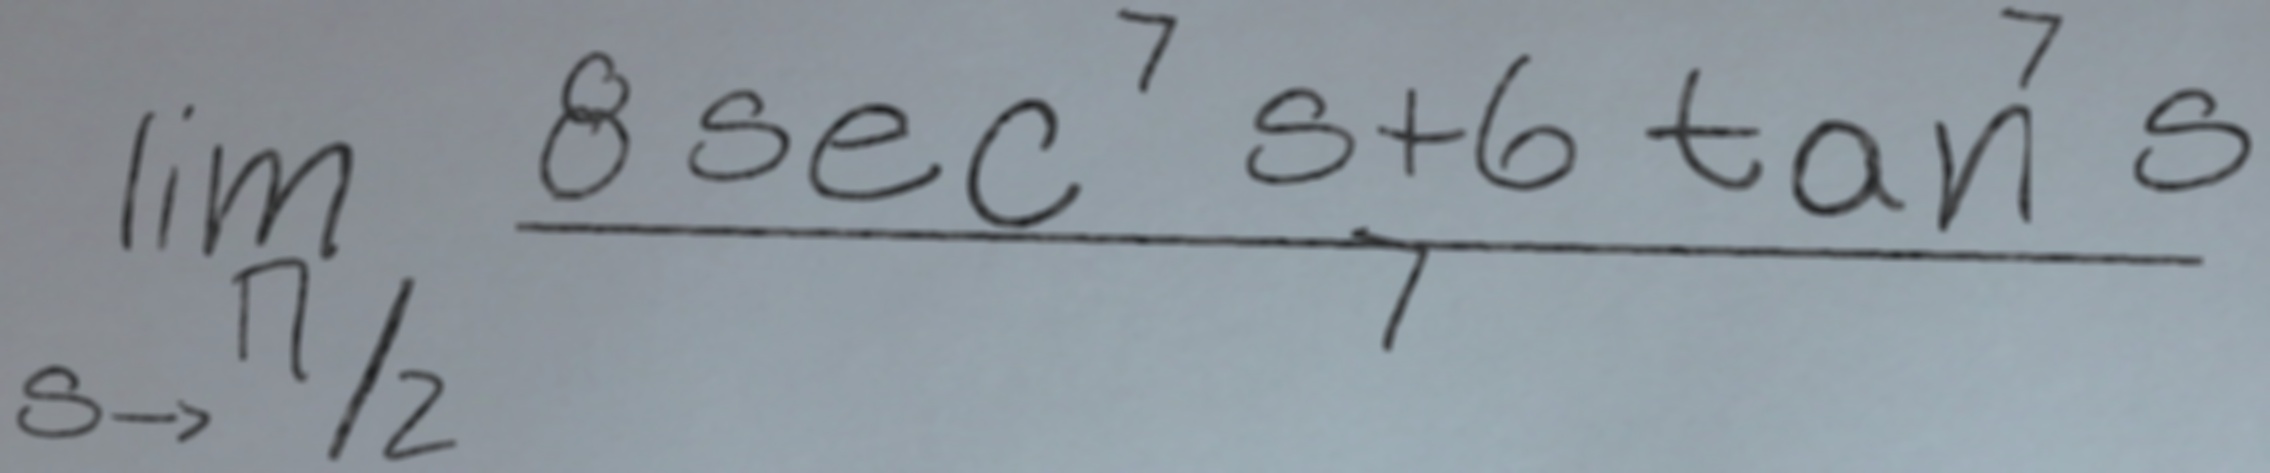 lim s→π/2 (8 sec^7 s + 6 tan^7 s) / 7